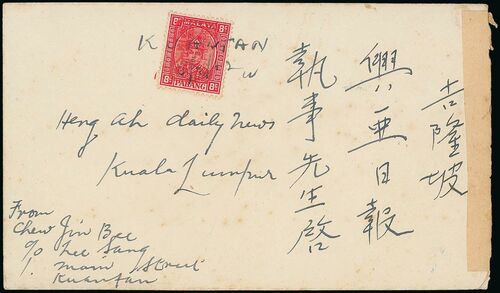 K  ANTAN
MALAYA
8c 8c
8c PAHANG 8c
Heng Ah daily News
Kuala Lumpur
吉隆坡
興亜日報
執事先生啓
From
Chew Jin Bee
c/o Lee Sang
1. main Street
Kuantan